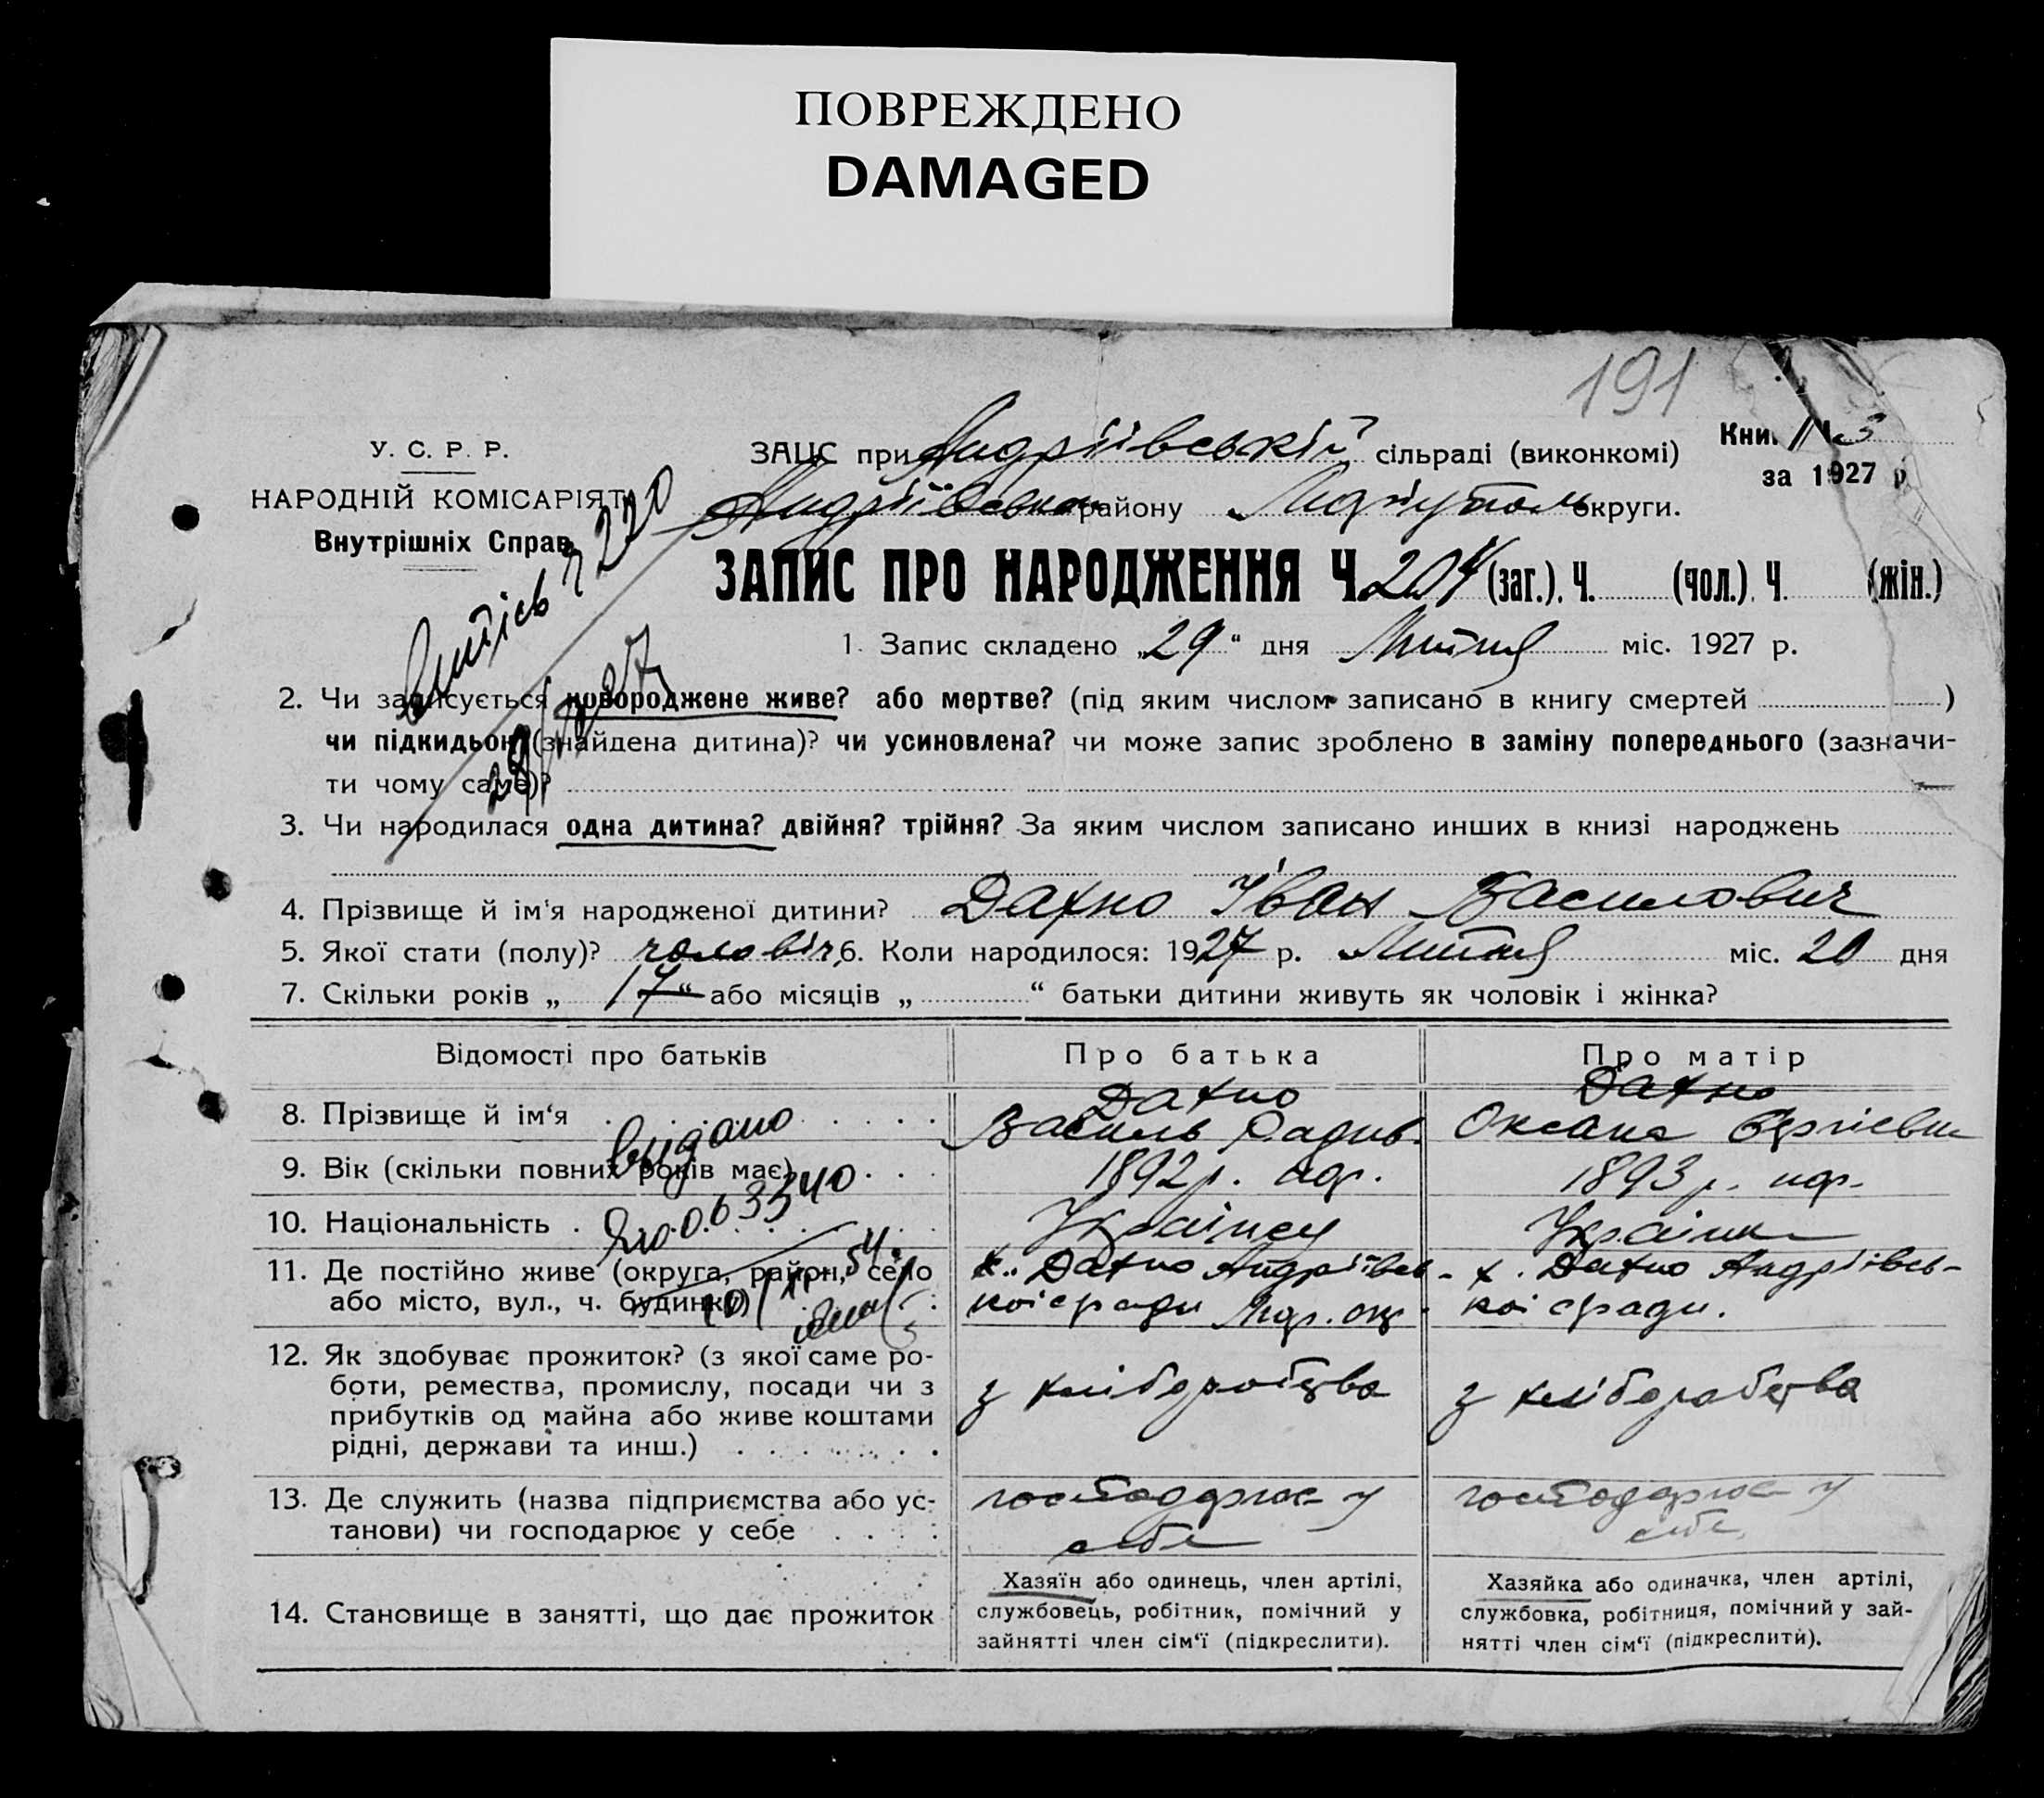 ПОВРЕЖДЕНО
DAMAGED
191
У. С. Р. Р.
НАРОДНІЙ КОМІСАРІЯТ
Внутрішніх Справ
ЗАЦС при Андріївській сільраді (виконкомі)
Андріївськ району округи.
Кни 3
за 1927 р
ЗАПИС ПРО НАРОДЖЕННЯ Ч. 204 (заг.). Ч. (чол.). Ч. (жін.)
1. Запис складено „29“ дня Липня міс. 1927 р.
Витісь 220
2. Чи записується новороджене живе? або мертве? (під яким числом записано в книгу смертей )
чи підкидьок (знайдена дитина)? чи усиновлена? чи може запис зроблено в заміну попереднього (зазначи-
ти чому саме)?
3. Чи народилася одна дитина? двійня? трійня? За яким числом записано инших в книзі народжень
4. Прізвище й ім'я народженої дитини? Дахно Іван Василович
5. Якої стати (полу)? чоловіч. 6. Коли народилося: 1927 р. Липня міс. 20 дня
7. Скільки років „ 17 “ або місяців „ “ батьки дитини живуть як чоловік і жінка?
Відомості про батьків Про батька Про матір
8. Прізвище й ім'я Дахно Василь Радив. Дахно Оксана
видано
9. Вік (скільки повних років має) 1892 р. нар. 1893 р. нар.
063340
10. Національність Українец Українка
11. Де постійно живе (округа, район, село х. Дахно Андріївсь- х. Дахно Андріївсь-
або місто, вул., ч. будинку) кої с ради кої с ради.
12. Як здобуває прожиток? (з якої саме ро-
боти, ремества, промислу, посади чи з з хліборобства з хліборобства
прибутків од майна або живе коштами
рідні, держави та инш.)
13. Де служить (назва підприємства або ус- господарює у господарює у
танови) чи господарює у себе себе себе
14. Становище в занятті, що дає прожиток
Хазяїн або одинець, член артілі,
службовець, робітник, помічний у
зайнятті член сім'ї (підкреслити).
Хазяйка або одиначка, член артілі,
службовка, робітниця, помічний у зай-
нятті член сім'ї (підкреслити).